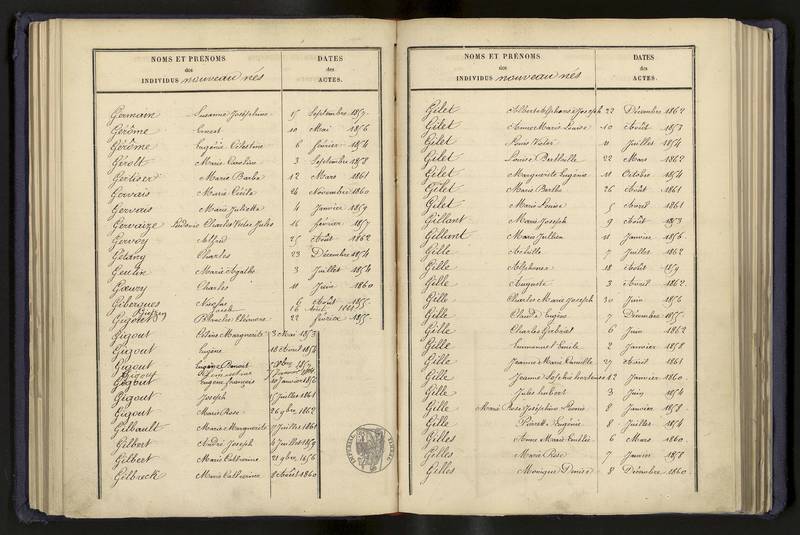 NOMS ET PRÉNOMS
des
INDIVIDUS nouveau nés
DATES
des
ACTES.
Germain Suzanne Joséphine 15 Septembre 1857
Gérôme Ernest 10 Mai 1856
Gérôme Eugénie Célestine 6 février 1854
Gérolt Marie Caroline 3 Septembre 1858
Gertiser Marie Barbe 12 Mars 1861
Gervais Marie Cécile 24 Novembre 1860
Gervais Marie Juliette 4 Janvier 1859
Gervaize Ludovic Charles Victor Jules 16 février 1857
Gervoy Alfred 25 Août 1862
Gétang Charles 23 Décembre 1854
Geulin Marie Agathe 3 Juillet 1854
Gœury Charles 11 Juin 1860
Giberques Nicolas 6 Août 1855
Gigout Blanche Eléonore 22 février 1855
Gigout Célina Marguerite 3 Mai 1853
Gigout Eugène 18 Avril 1854
Gigout Eugène Benoit
Gigout Eugène françois 10 Janvier 1852
Gigout Joseph 15 Juillet 1861
Gigout Marie Rose 26 9bre 1862
Gilbault Marie Marguerite 7 Juillet 1861
Gilbert André Joseph 4 Juillet 1859
Gilbert Marie Catherine 21 9bre 1656
Gilbreck Marie Catherine 8 Août 1860
NOMS ET PRÉNOMS
des
INDIVIDUS nouveau nés
DATES
des
ACTES.
Gilet Albert Alphonse Joseph 22 Décembre 1862
Gilet Anne Marie Louise 10 Août 1853
Gilet Louis Victor 11 Juillet 1854
Gilet Louise Berthille 22 Mars 1862
Gilet Marguerite Eugénie 11 Octobre 1854
Gilet Marie Berthe 26 Août 1861
Gilet Marie Louise 5 Avril 1861
Gillant Marie Joseph 9 Août 1853
Gillant Marie Julien 11 Janvier 1856
Gille Achille 7 Juillet 1862
Gille Alphonse 18 Août 1859
Gille Auguste 3 Avril 1862
Gille Charles Marie Joseph 30 Juin 1856
Gille Claude Eugène 7 Décembre 1855
Gille Charles Gabriel 6 Juin 1862
Gille Emmanuel Emile 2 Janvier 1858
Gille Jeanne Marie Camille 27 Avril 1861
Gille Jeanne Sophie Hortense 12 Janvier 1860
Gille Jules hubert 3 Juin 1854
Gille Marie Rose Joséphine Léonie 8 Janvier 1858
Gille Pierrette Eugénie 8 Juillet 1854
Gilles Anne Marie Emélie 6 Mars 1860
Gilles Marie Rose 7 Janvier 1858
Gilles Monique Denise 8 Décembre 1860